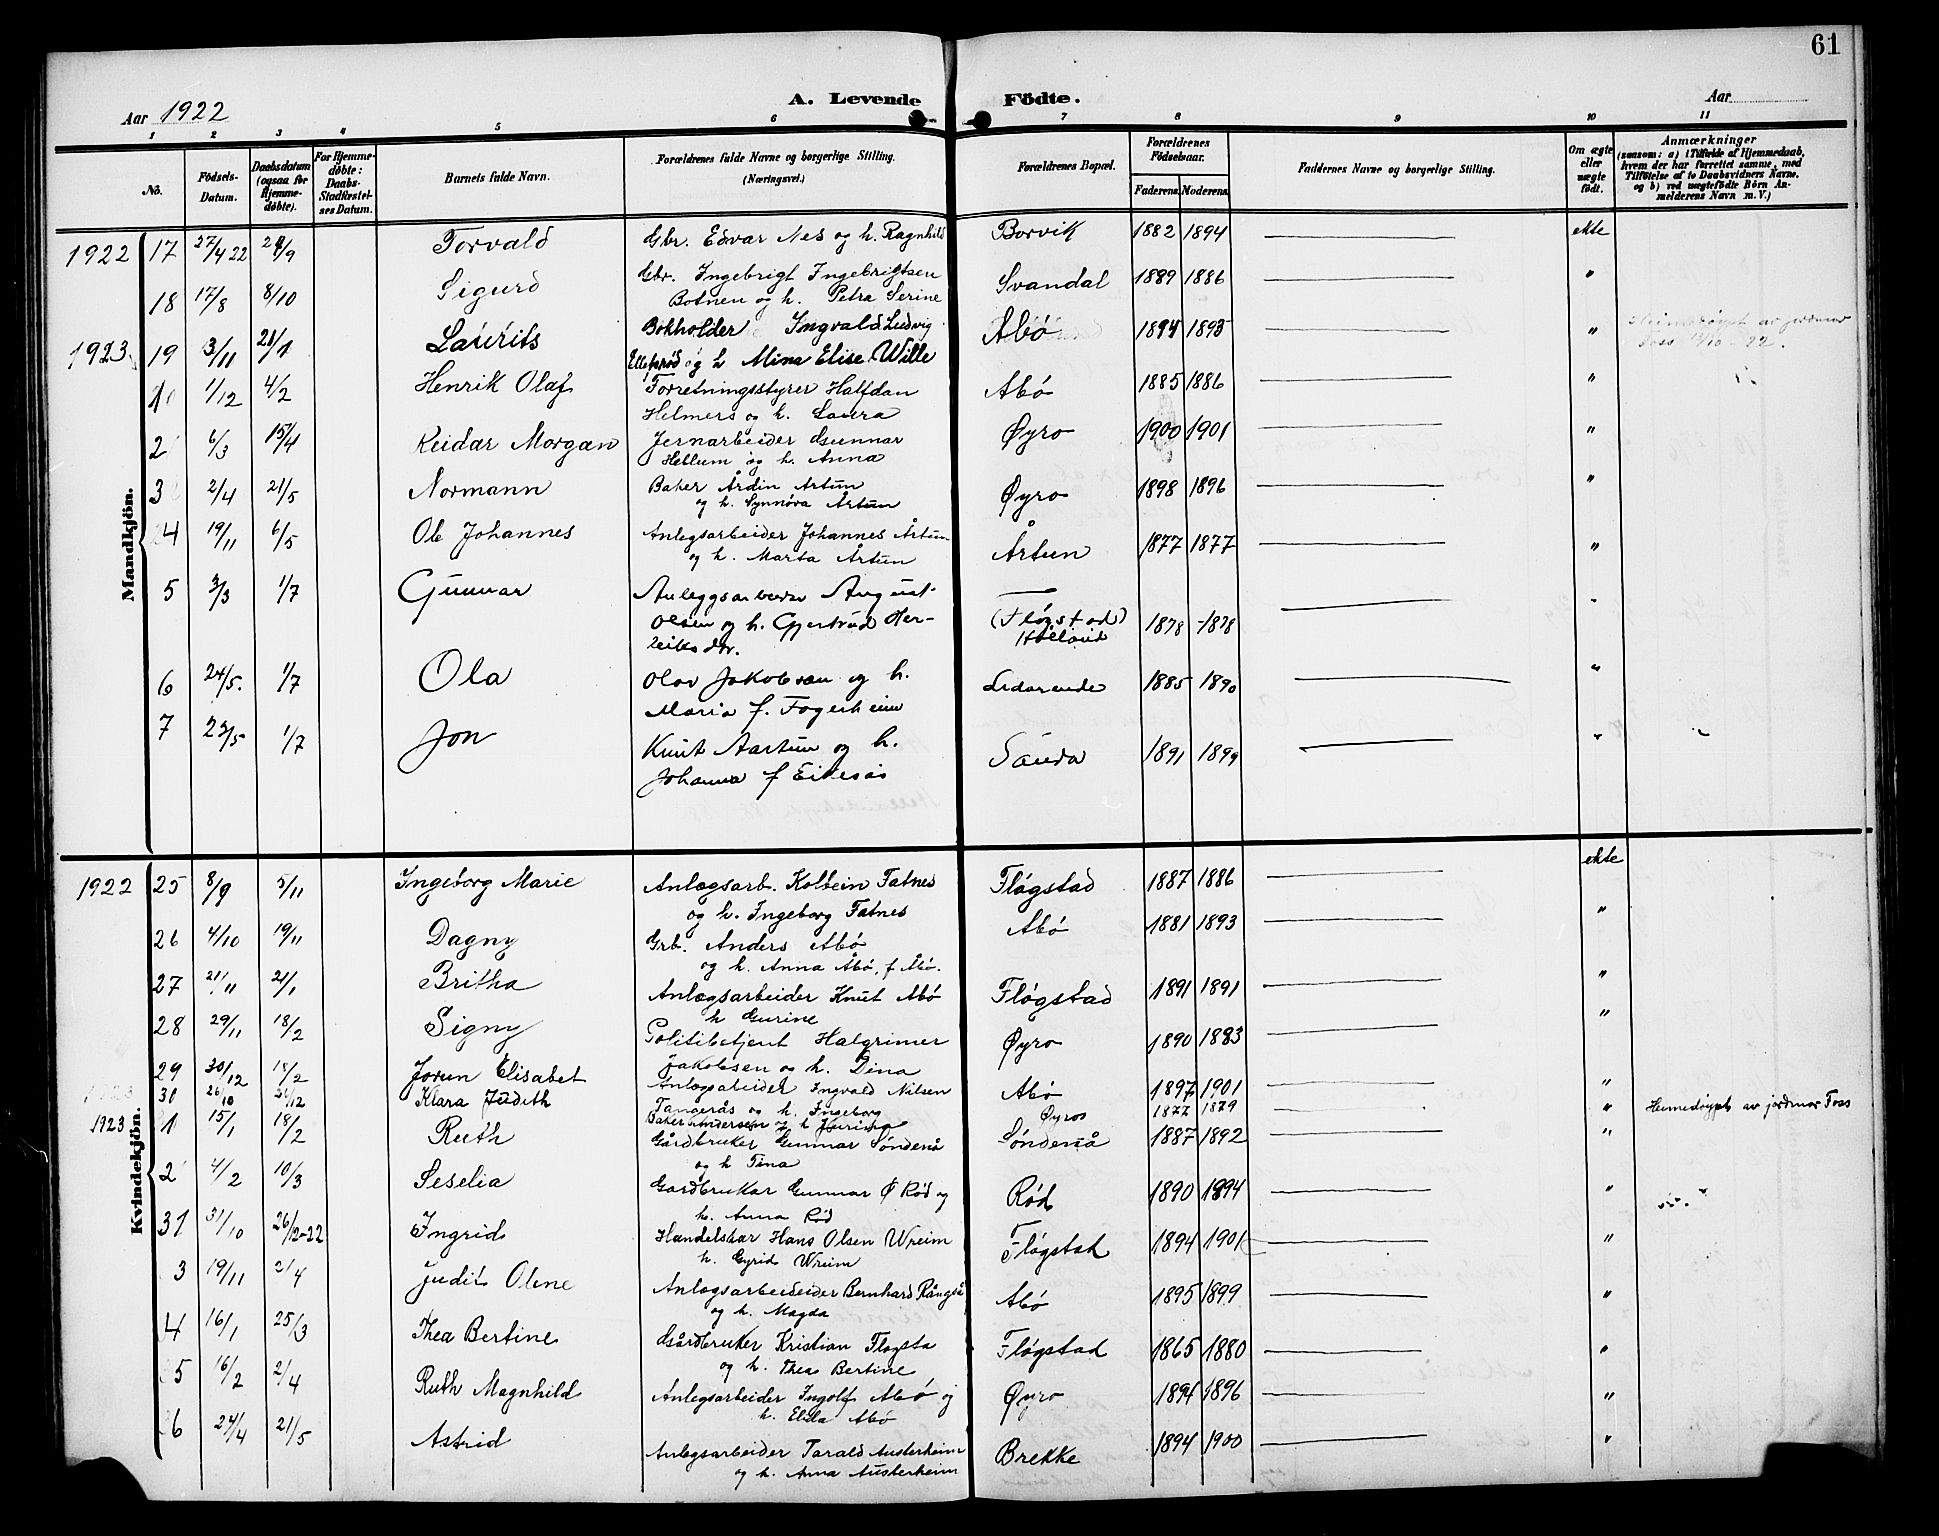 61
Aar 1922
A. Levende Födte.
Aar
1 2 3 4 5 6 7 8 9 10 11
No.
Födsels-Datum.
Daabsdatum (ogsaa for Hjemme-döbte).
For Hjemme-döbte: Daabs-Stadfæstel-ses Datum.
Barnets fulde Navn.
Forældrenes fulde Navne og borgerlige Stilling. (Næringsvei.)
Forældrenes Bopæl.
Forældrenes Födselsaar.
Faderens. Moderens.
Faddernes Navne og borgerlige Stilling.
Om ægte eller uægte födt.
Anmærkninger
(saasom: a) i Tilfælde af Hjemmedaab, hvem der har forrettet samme, med Tilföielse af to Daabsvidners Navne, og b) ved uægtefödte Börn An-melderens Navn m. V.)
Mandkjön.
1922 17 27/4 22 24/9 Torvald Gbr. Edvar Nes og h. Ragnhild Borvik 1882 1894 ekte
18 17/8 8/10 Sigurd Gbr. Ingebrigt Ingebrigtsen Svandal 1889 1886 "
Botnen og h. Petra Serine
1923 19 3/11 21/1 Laurits Bokholder Ingvald Ludvig Åbø 1894 1895 " Heimedøypt av jordmor
Ellefsrød og h Mina Elise Wille Foss 11/10 - 22.
10 1/12 4/2 Henrik Olaf Forretningsstyrer Halfdan Abø 1885 1886 "
Helmers og h. Laura
2 6/3 15/4 Reidar Morgan Jernarbeider Gunnar Øyro 1900 1901 "
Hebllum og h. Anna
3 2/4 21/5 Normann Baker Årdin Artun Øyro 1898 1896 "
og h. Synnøva Årtun
4 19/11 6/5 Ole Johannes Anlegsarbeider Johannes Årtun Årtun 1877 1877 "
og h. Marta Årtun
5 3/3 1/7 Gunnar Anleggsarbeider August (Fløgstad) 1878 1878 "
Olsen og h. Gjertrud Her- Hølland
leiksdtr.
6 24/5. 1/7 Ola Olav Jakobsen og h. 1885 1890 "
Maria f. Fagerheim
7 23/5 1/7 Jon Knut Aartun og h. Sauda 1891 1899 "
Johanna f Eikesås
Kvindekjön.
1922 25 8/9 5/11 Ingeborg Marie Anlægsarb. Kolbein Fatnes Fløgstad 1887 1886 ekte
og h. Ingeborg Fatnes
26 4/10 19/11 Dagny Grb. Anders Abø Abø 1881 1893 "
og h. Anna Åbø, f Åbø.
27 21/11 21/1 Britha Anlægsarbeider Knut Abø Fløgstad 1891 1891 "
h Gurine
28 29/11 18/2 Signy Politibetjent Halgrimer Øyro 1890 1883 "
Jakobsen og h. Dina
29 30/12 18/2 Jorun Elisabet Anlægsabeider Ingvald Nilsen Abø 1897 1901 "
Tangerås og h. Ingeborg
30 26/10 26/12 Klara Judith Baker Andersen og h Øyros 1877 1879 " Heimedøypt av jordmor Foss
1923 1 15/1 18/2 Ruth Gårdbruker Gunnar Søndenå Søndenå 1887 1892 "
og h Tina
2 4/2 10/3 Seselia Gardbrukar Gunnar Ø Rød og Rød 1890 1894 "
h. Anna Rød
31 31/10 26/12-22 Ingrid Handelskar Hans Olsen Wreim Fløgstad 1894 1901 "
h. Gyrid Wreim
3 19/11 2/4 Judit Oline Anlægsarbeideider Bernhard Rångså Abø 1895 1899 "
og h. Magda
4 16/1 25/3 Thea Bertine Gårdbruker Kristian Flogsta Fløgstad 1865 1880 "
og h. Thea Bertine
5 16/2 2/4 Ruth Magnhild Anlegsarbeider Ingolf Abø og Øyro 1894 1896 "
h. Elida Abø
6 24/4 21/5 Astrid Anlegsarbeider Tarald Austerheim Brekke 1894 1900 "
og h. Anna Austerheim